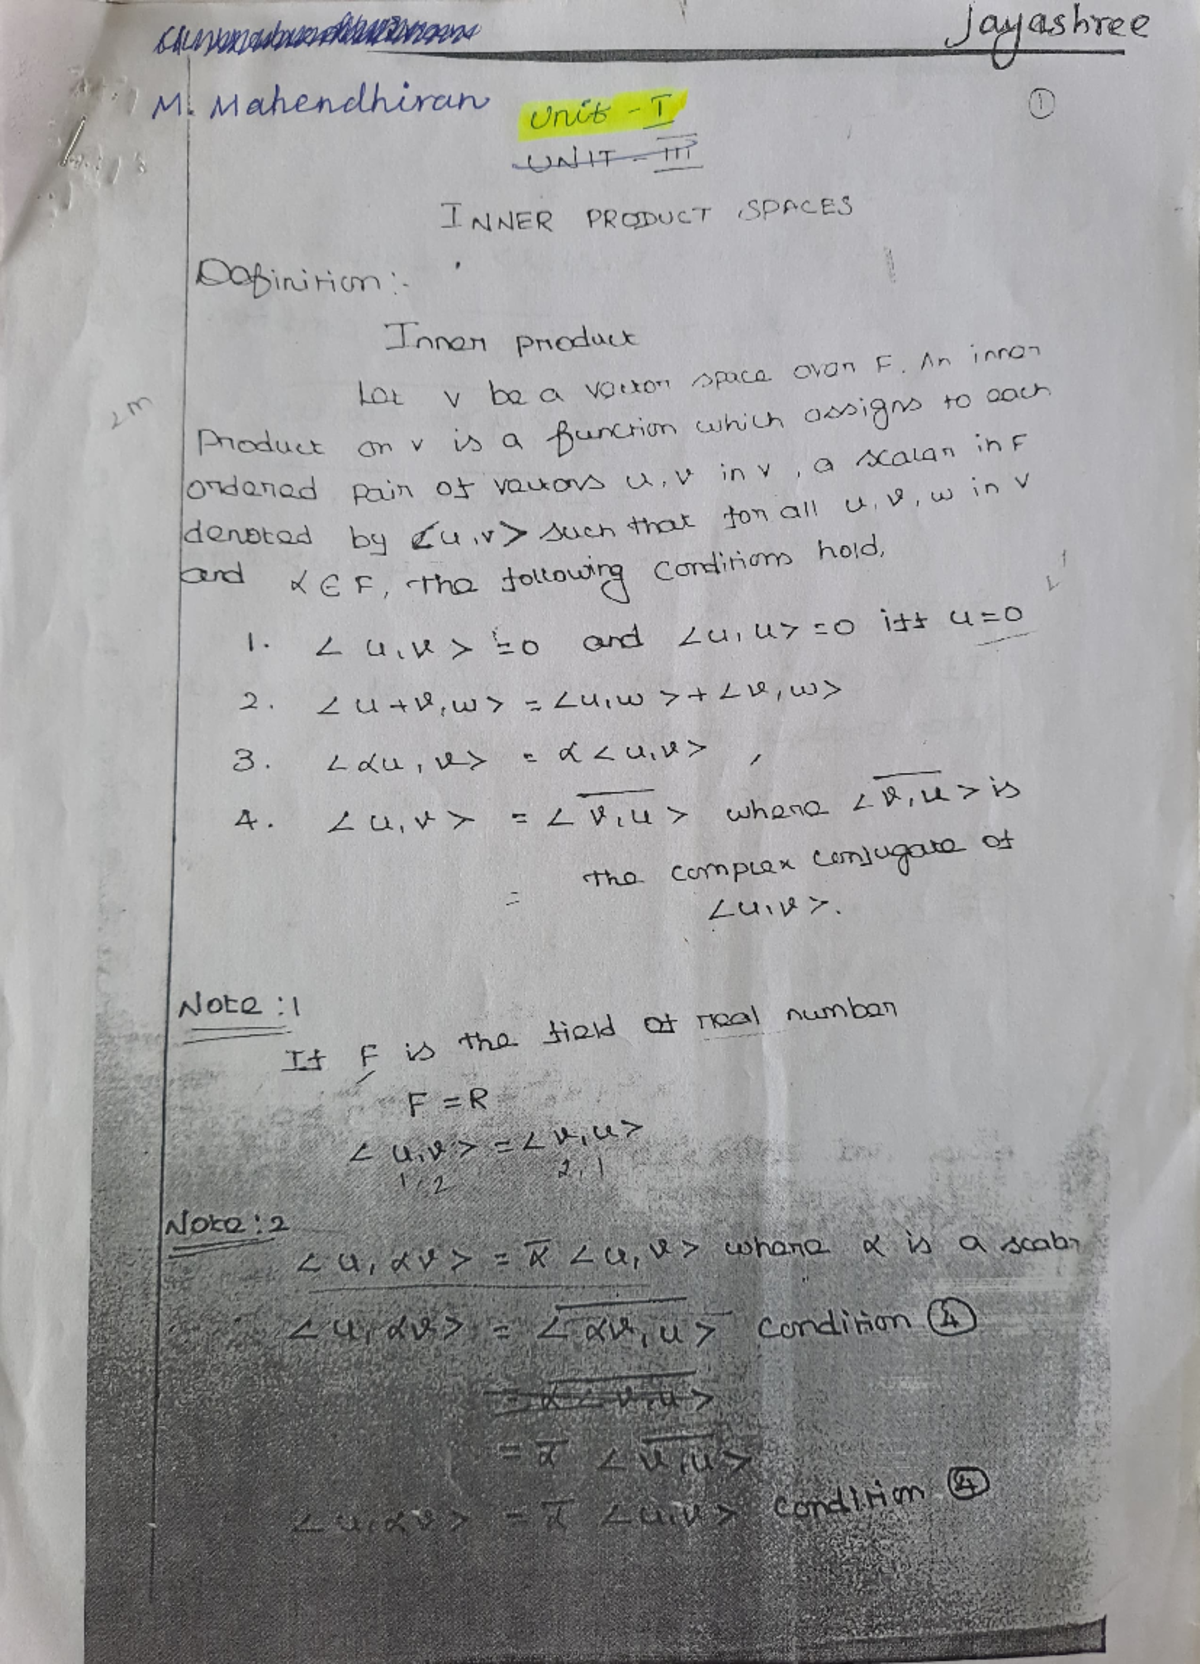 Jayashree
M. Mahendhiran
Unit - I
①
UNIT - III
INNER PRODUCT SPACES
Definition :-
Inner product
2m
Let v be a vector space over F. An inner
Product on v is a function which assigns to each
ordered pair of vectors u, v in v, a scalar in F
denoted by <u,v> such that for all u, v, w in v
and α ∈ F, The following Conditions hold,
1. < u, v > ≥0 and <u, u> =0 iff u=0
2. < u+v, w> = <u, w >+ <v, w>
3. <αu, v> = α < u, v> ,
4. <u, v> = < v̅,̅ ̅u̅ > where < v̅,̅ ̅u̅ > is
= the complex conjugate of
<u,v>.
Note :1
If F is the field of real number
F = R
< u,v> = < v,u>
1, 2 2, 1
Note : 2
<u, αv> = α̅ <u, v> where α is a scalar
<u, αv> = < α̅v̅,̅ ̅u̅ > Condition ④
= α < v,u>
= α̅ < v̅,̅ ̅u̅ >
<u, αv> = α̅ <u,v> Condition ④